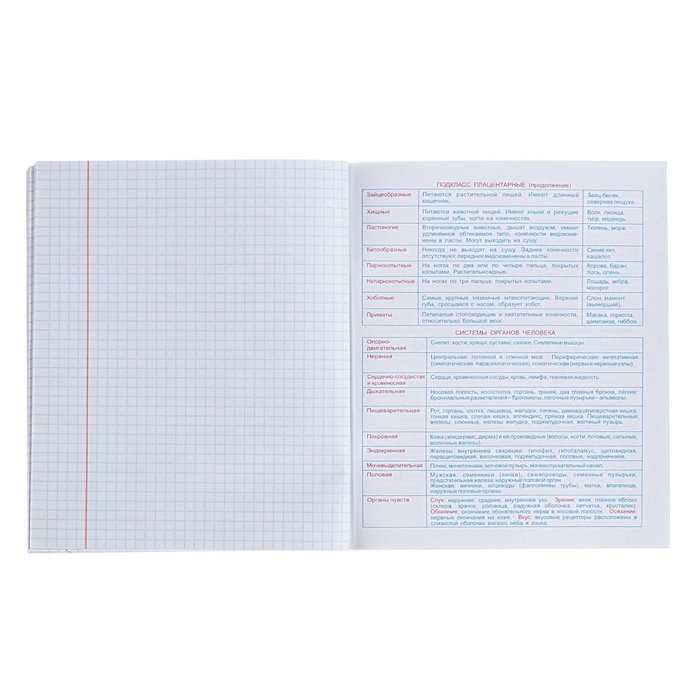 ПОДКЛАСС ПЛАЦЕНТАРНЫЕ (продолжение)
Зайцеобразные Питаются растительной пищей. Имеют длинный Заяц-беляк,
кишечник. северная пищуха.
Хищные Питаются животной пищей. Имеют клыки и режущие Волк, лисица,
коренные зубы, когти на конечностях. тигр, медведь.
Ластоногие Вторичноводные животные, дышат воздухом, имеют Тюлень, морж.
удлинённое обтекаемое тело, конечности видоизме-
нены в ласты. Могут выходить на сушу.
Китообразные Никогда не выходят на сушу. Задние конечности Синий кит,
отсутствуют, передние видоизменены в ласты. кашалот.
Парнокопытные На ногах по два или по четыре пальца, покрытых Корова, баран,
копытами. Растительноядные. лось, олень.
Непарнокопытные На ногах по три пальца, покрытых копытами. Лошадь, зебра,
носорог.
Хоботные Самые крупные наземные млекопитающие. Верхняя Слон, мамонт
губа, сросшаяся с носом, образует хобот. (вымерший).
Приматы Пятипалые стопоходящие и хватательные конечности, Макака, горилла,
относительно большой мозг. шимпанзе, гиббон.
СИСТЕМЫ ОРГАНОВ ЧЕЛОВЕКА
Опорно-
двигательная Скелет: кости, хрящи, суставы, связки. Скелетные мышцы.
Нервная Центральная: головной и спинной мозг. Периферическая: вегетативная
(симпатическая, парасимпатическая), соматическая (нервы и нервные узлы)
Сердечно-сосудистая Сердце, кровеносные сосуды, кровь, лимфа, тканевая жидкость.
и кровеносная
Дыхательная Носовая полость, носоглотка, гортань, трахея, два главных бронха, лёгкие:
бронхиальные разветвления – бронхиолы, лёгочные пузырьки – альвеолы.
Пищеварительная Рот, гортань, глотка, пищевод, желудок, печень, двенадцатиперстная кишка,
тонкая кишка, слепая кишка, аппендикс, прямая кишка. Пищеварительные
железы: слюнные, железы желудка, поджелудочная, желчный пузырь.
Покровная Кожа (эпидермис, дерма) и её производные (волосы, ногти, потовые, сальные,
молочные железы).
Эндокринная Железы внутренней секреции: гипофиз, гипоталамус, щитовидная,
паращитовидная, вилочковая, поджелудочная, половые, надпочечники.
Мочевыделительная Почки, мочеточники, мочевой пузырь, мочеиспускательный канал.
Половая Мужская: семенники (яички), семяпроводы, семенные пузырьки,
предстательная железа, наружный половой орган.
Женская: яичники, яйцеводы (фаллопиевы трубы), матка, влагалище,
наружные половые органы.
Органы чувств Слух: наружное, среднее, внутреннее ухо. Зрение: веки, глазное яблоко
(склера, зрачок, роговица, радужная оболочка, сетчатка, хрусталик).
Обоняние: окончания обонятельного нерва в носовой полости. Осязание:
нервные окончания на коже. Вкус: вкусовые рецепторы расположены в
слизистой оболочке мягкого нёба и языка.